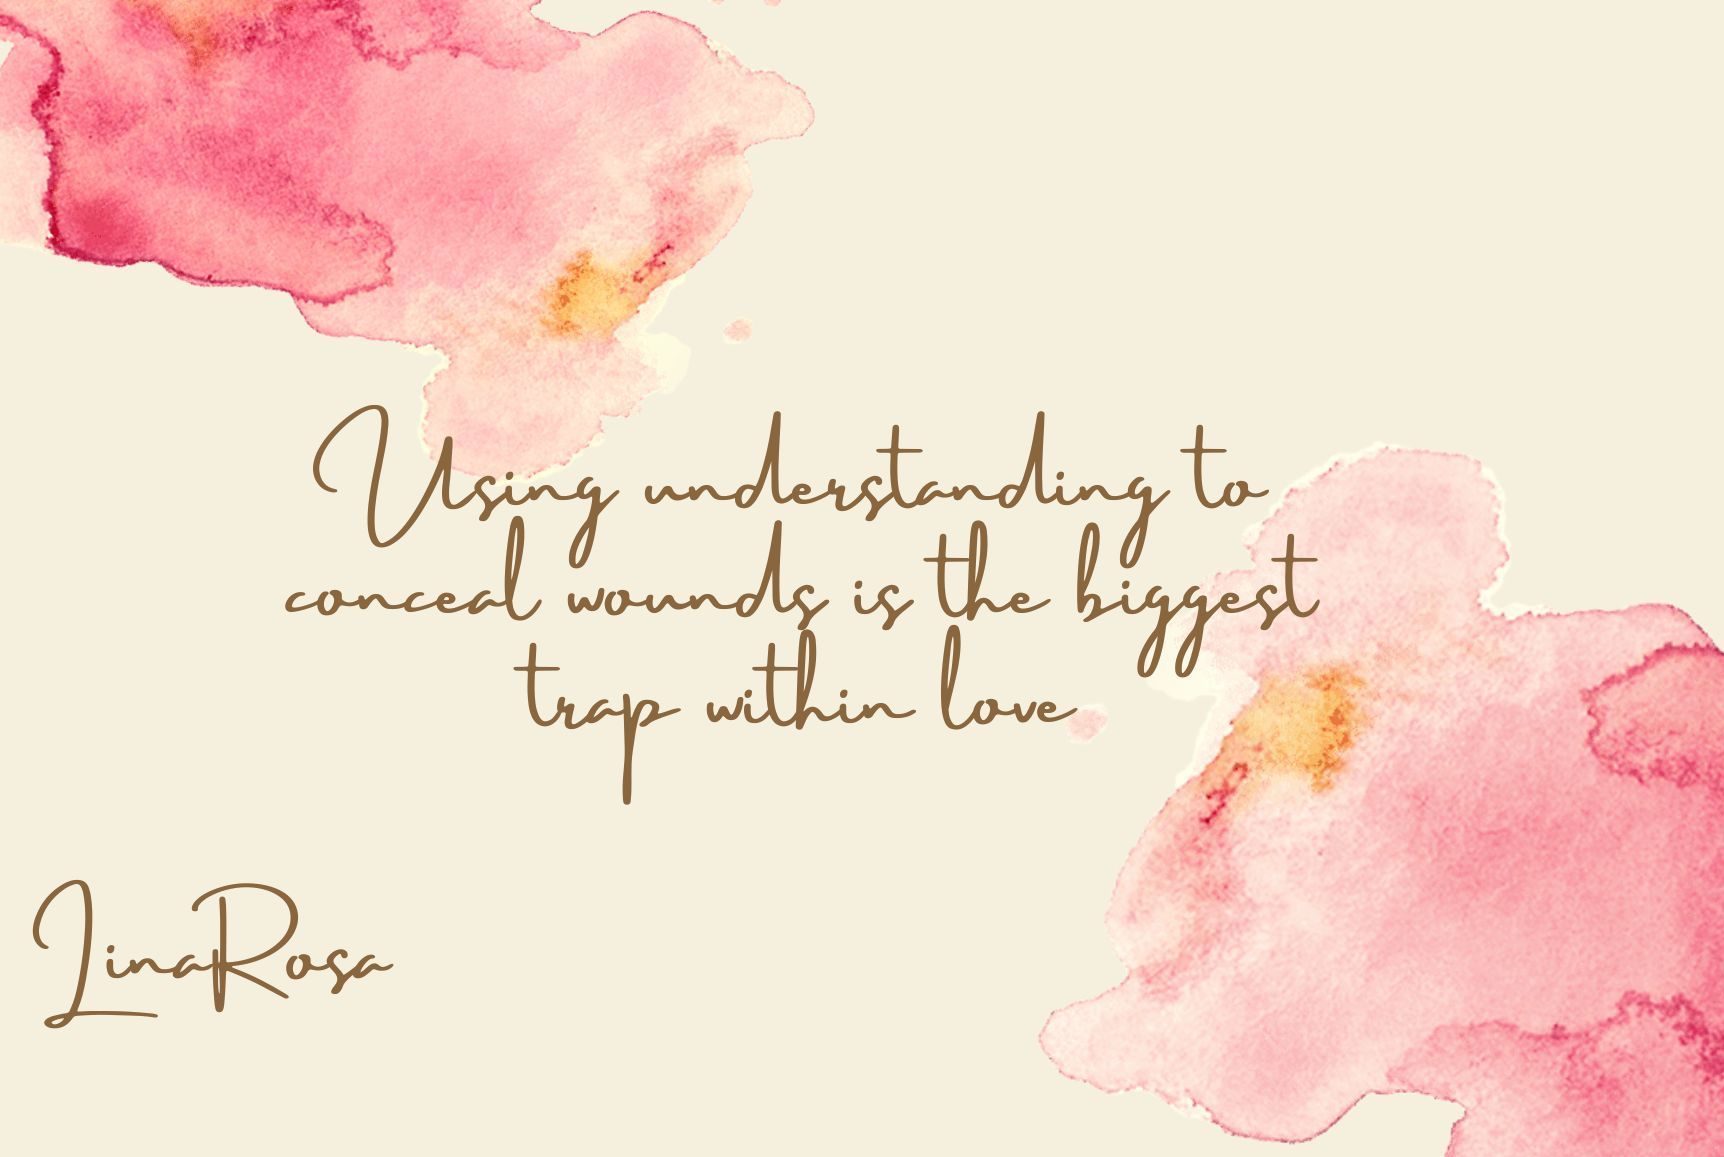 Using understanding to
conceal wounds is the biggest
trap within love
LinaRosa